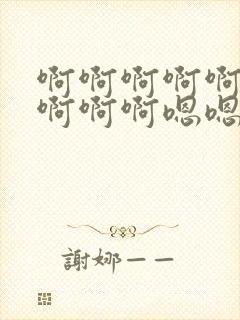 啊啊啊啊啊
啊啊啊嗯嗯
謝娜——